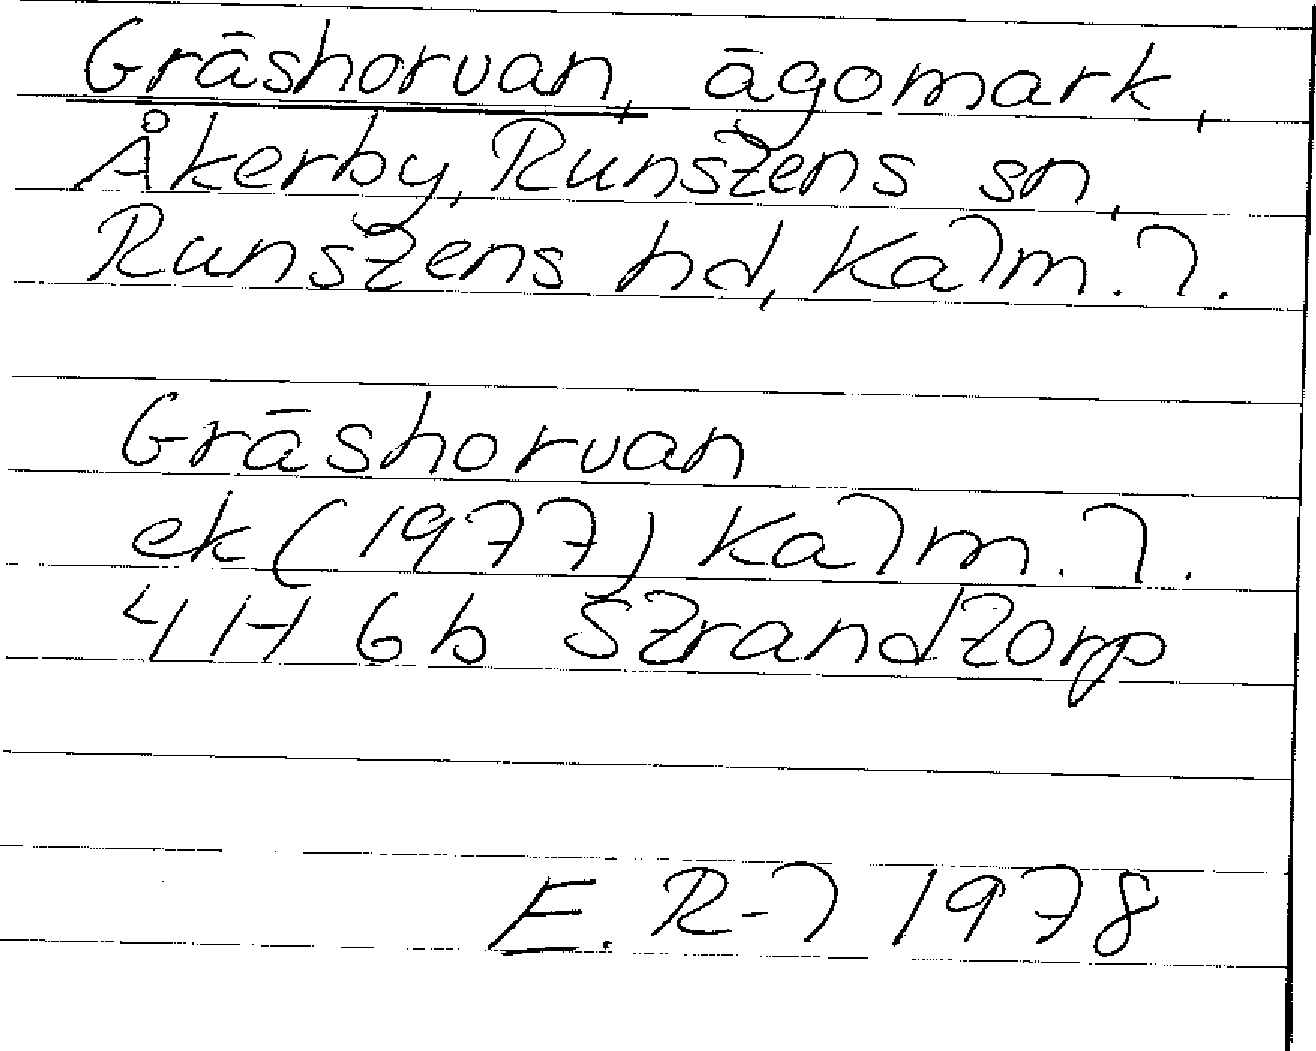 Gräshorvan, ägomark,
Åkerby, Runstens sn,
Runstens hd, Kalm. l.
Gräshorvan
ek (1977) Kalm. l.
4 H 6 b Strandtorp
E. R-l 1978